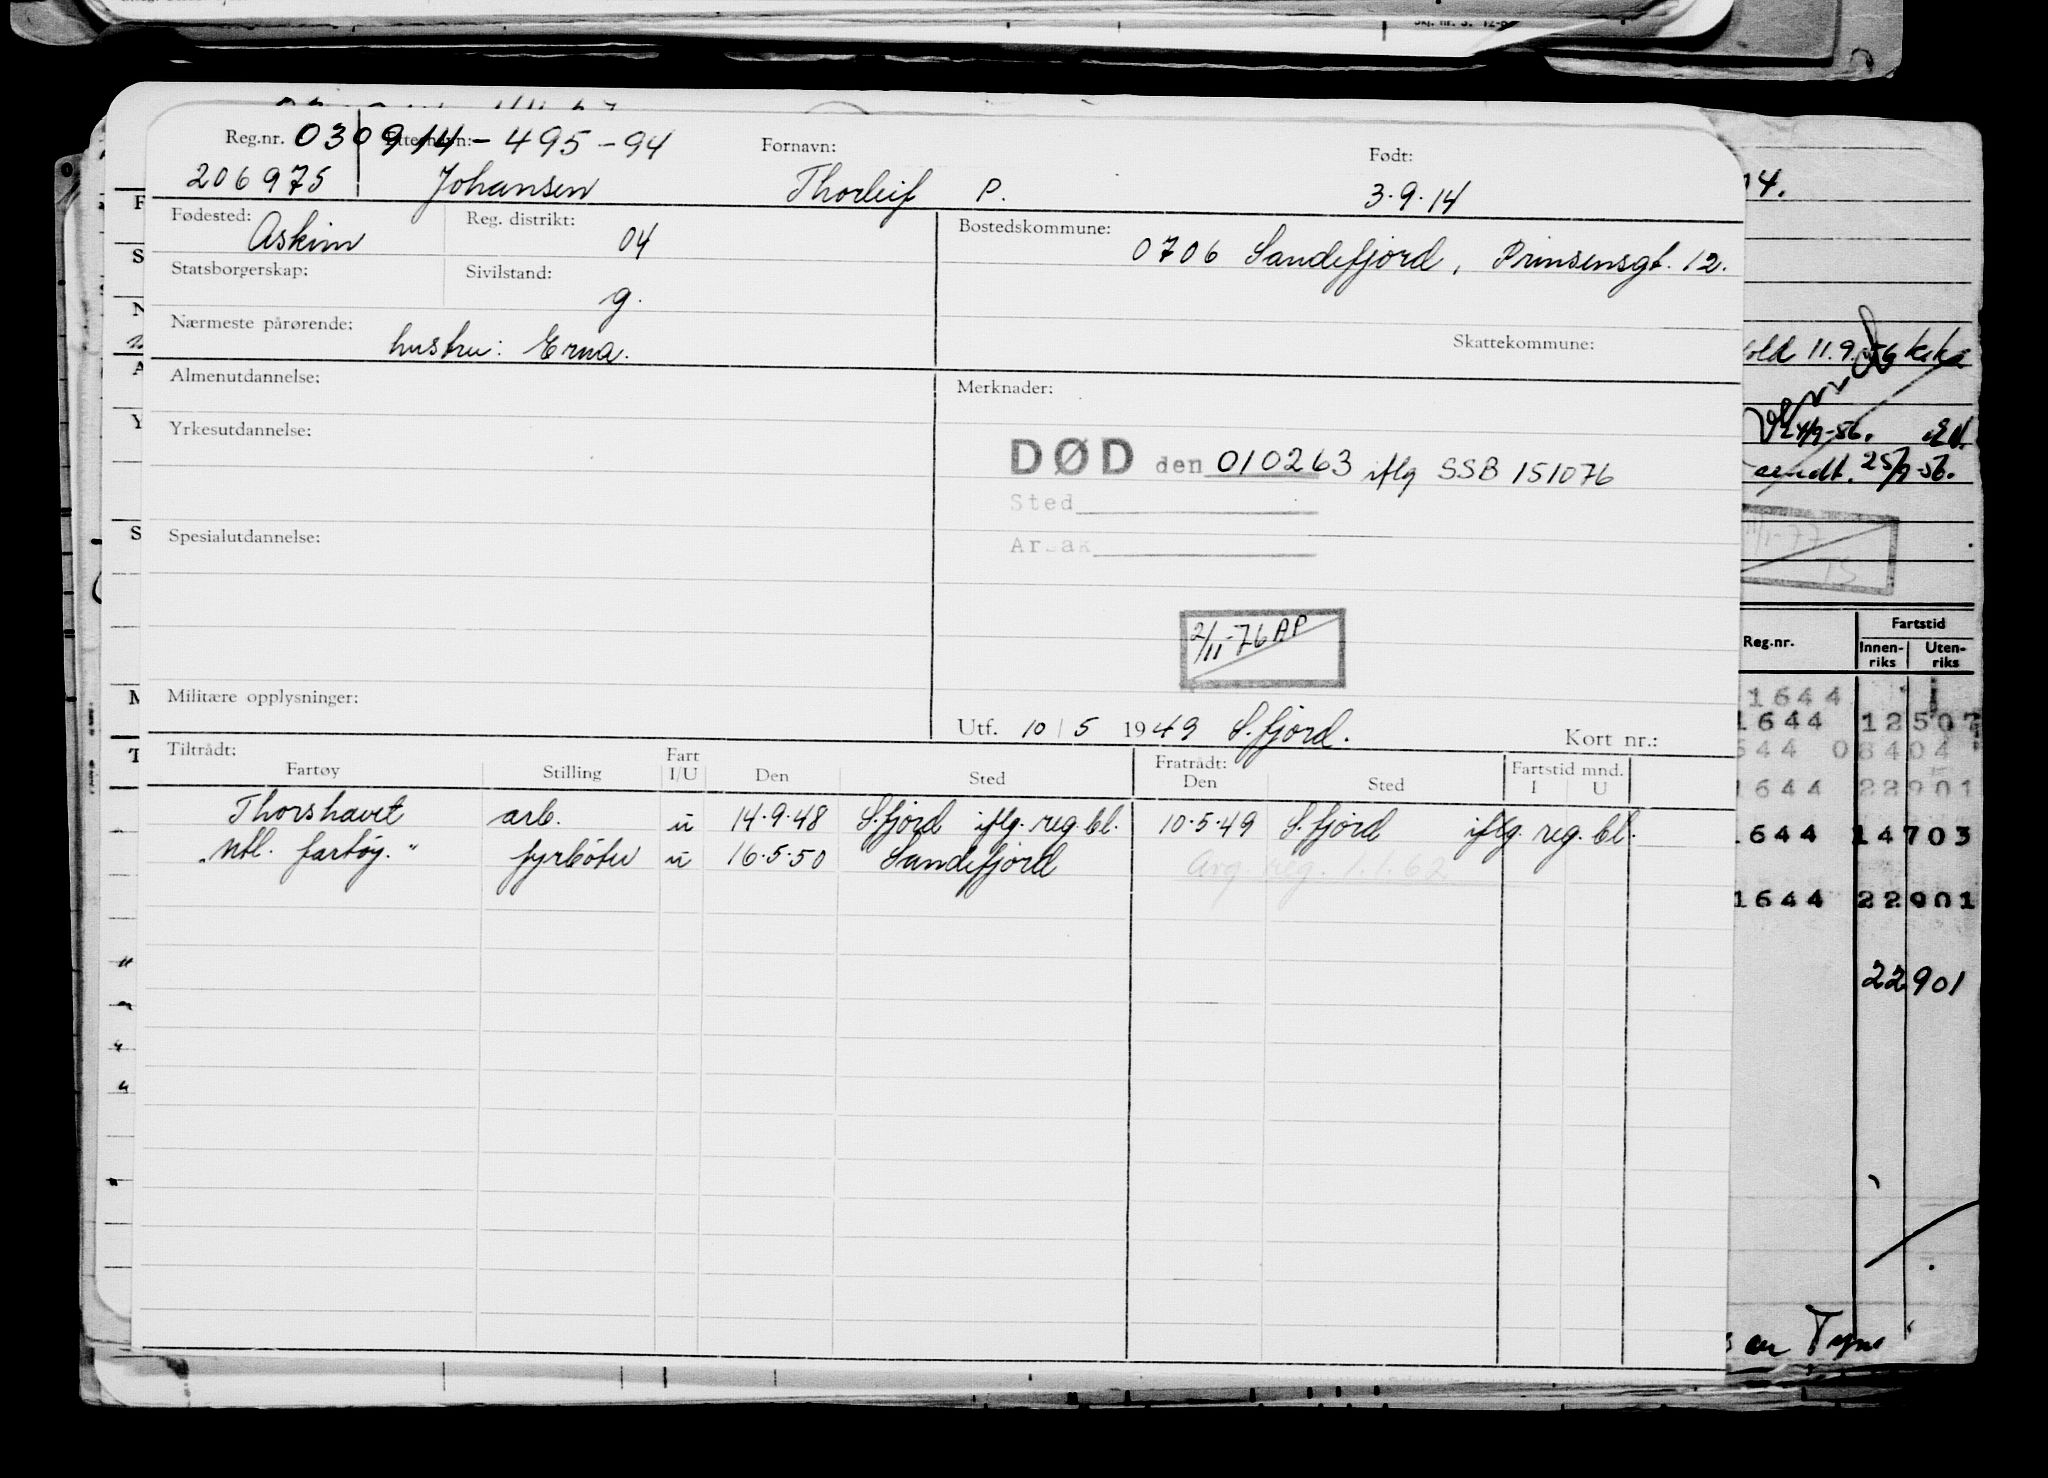 Reg.nr. 030914-495-94 Etternavn: Fornavn: Født:
206975 Johansen Thorleif P. 3.9.14
Fødested: Askim Reg. distrikt: 04 Bostedskommune: 0706 Sandefjord, Prinsensgt. 12.
Statsborgerskap: Sivilstand: g.
Nærmeste pårørende: hustru: Erna. Skattekommune:
Almenutdannelse: Merknader:
Yrkesutdannelse:
DØD den 010263 iflg SSB 151076
Sted
Årsak
Spesialutdannelse:
2/11-76 AP
Militære opplysninger:
Utf. 10/5 1949 S.fjord. Kort nr.:
Tiltrådt: Fart Fratrådt: Fartstid mnd.
Fartøy Stilling I/U Den Sted Den Sted I U
Thorshavet arb. u 14.9.48 S.fjord iflg. reg.bl. 10.5.49 S.fjord iflg. reg. bl.
"Utl. fartøy." fyrbøter u 16.5.50 Sandefjord Avg. reg. 1.1.62
04.
11.9.56
24/9-56.
25/9-56.
11/1-77
TS
Reg.nr. Fartstid
Innen- Uten-
riks riks
1644
1644 12507
644 08404
1644 22901
1644 14703
1644 22901
22901